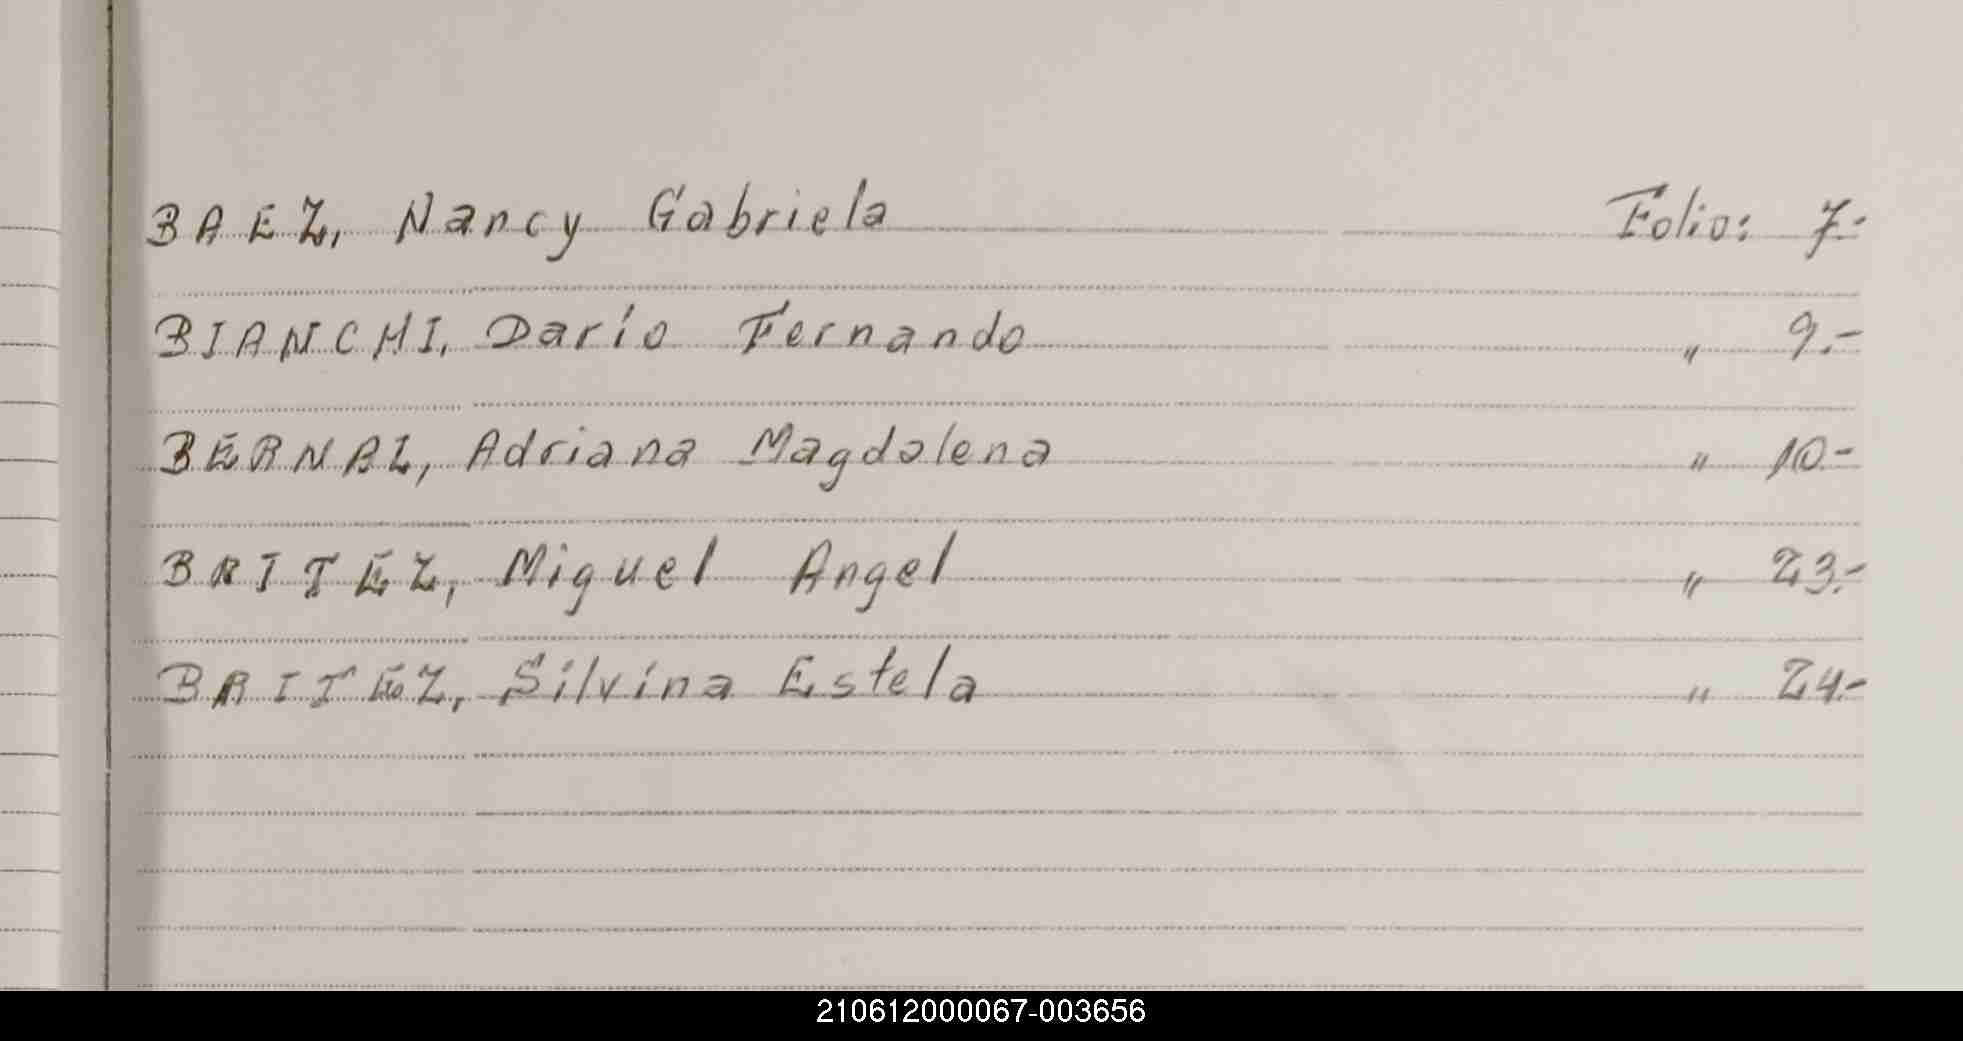 BAEZ, Nancy Gabriela Folio: 7.-
BIANCHI, Darío Fernando " 9.-
BERNAL, Adriana Magdalena " 10.-
BRITEZ, Miguel Angel " 23.-
BRITEZ, Silvina Estela " 24.-
210612000067-003656